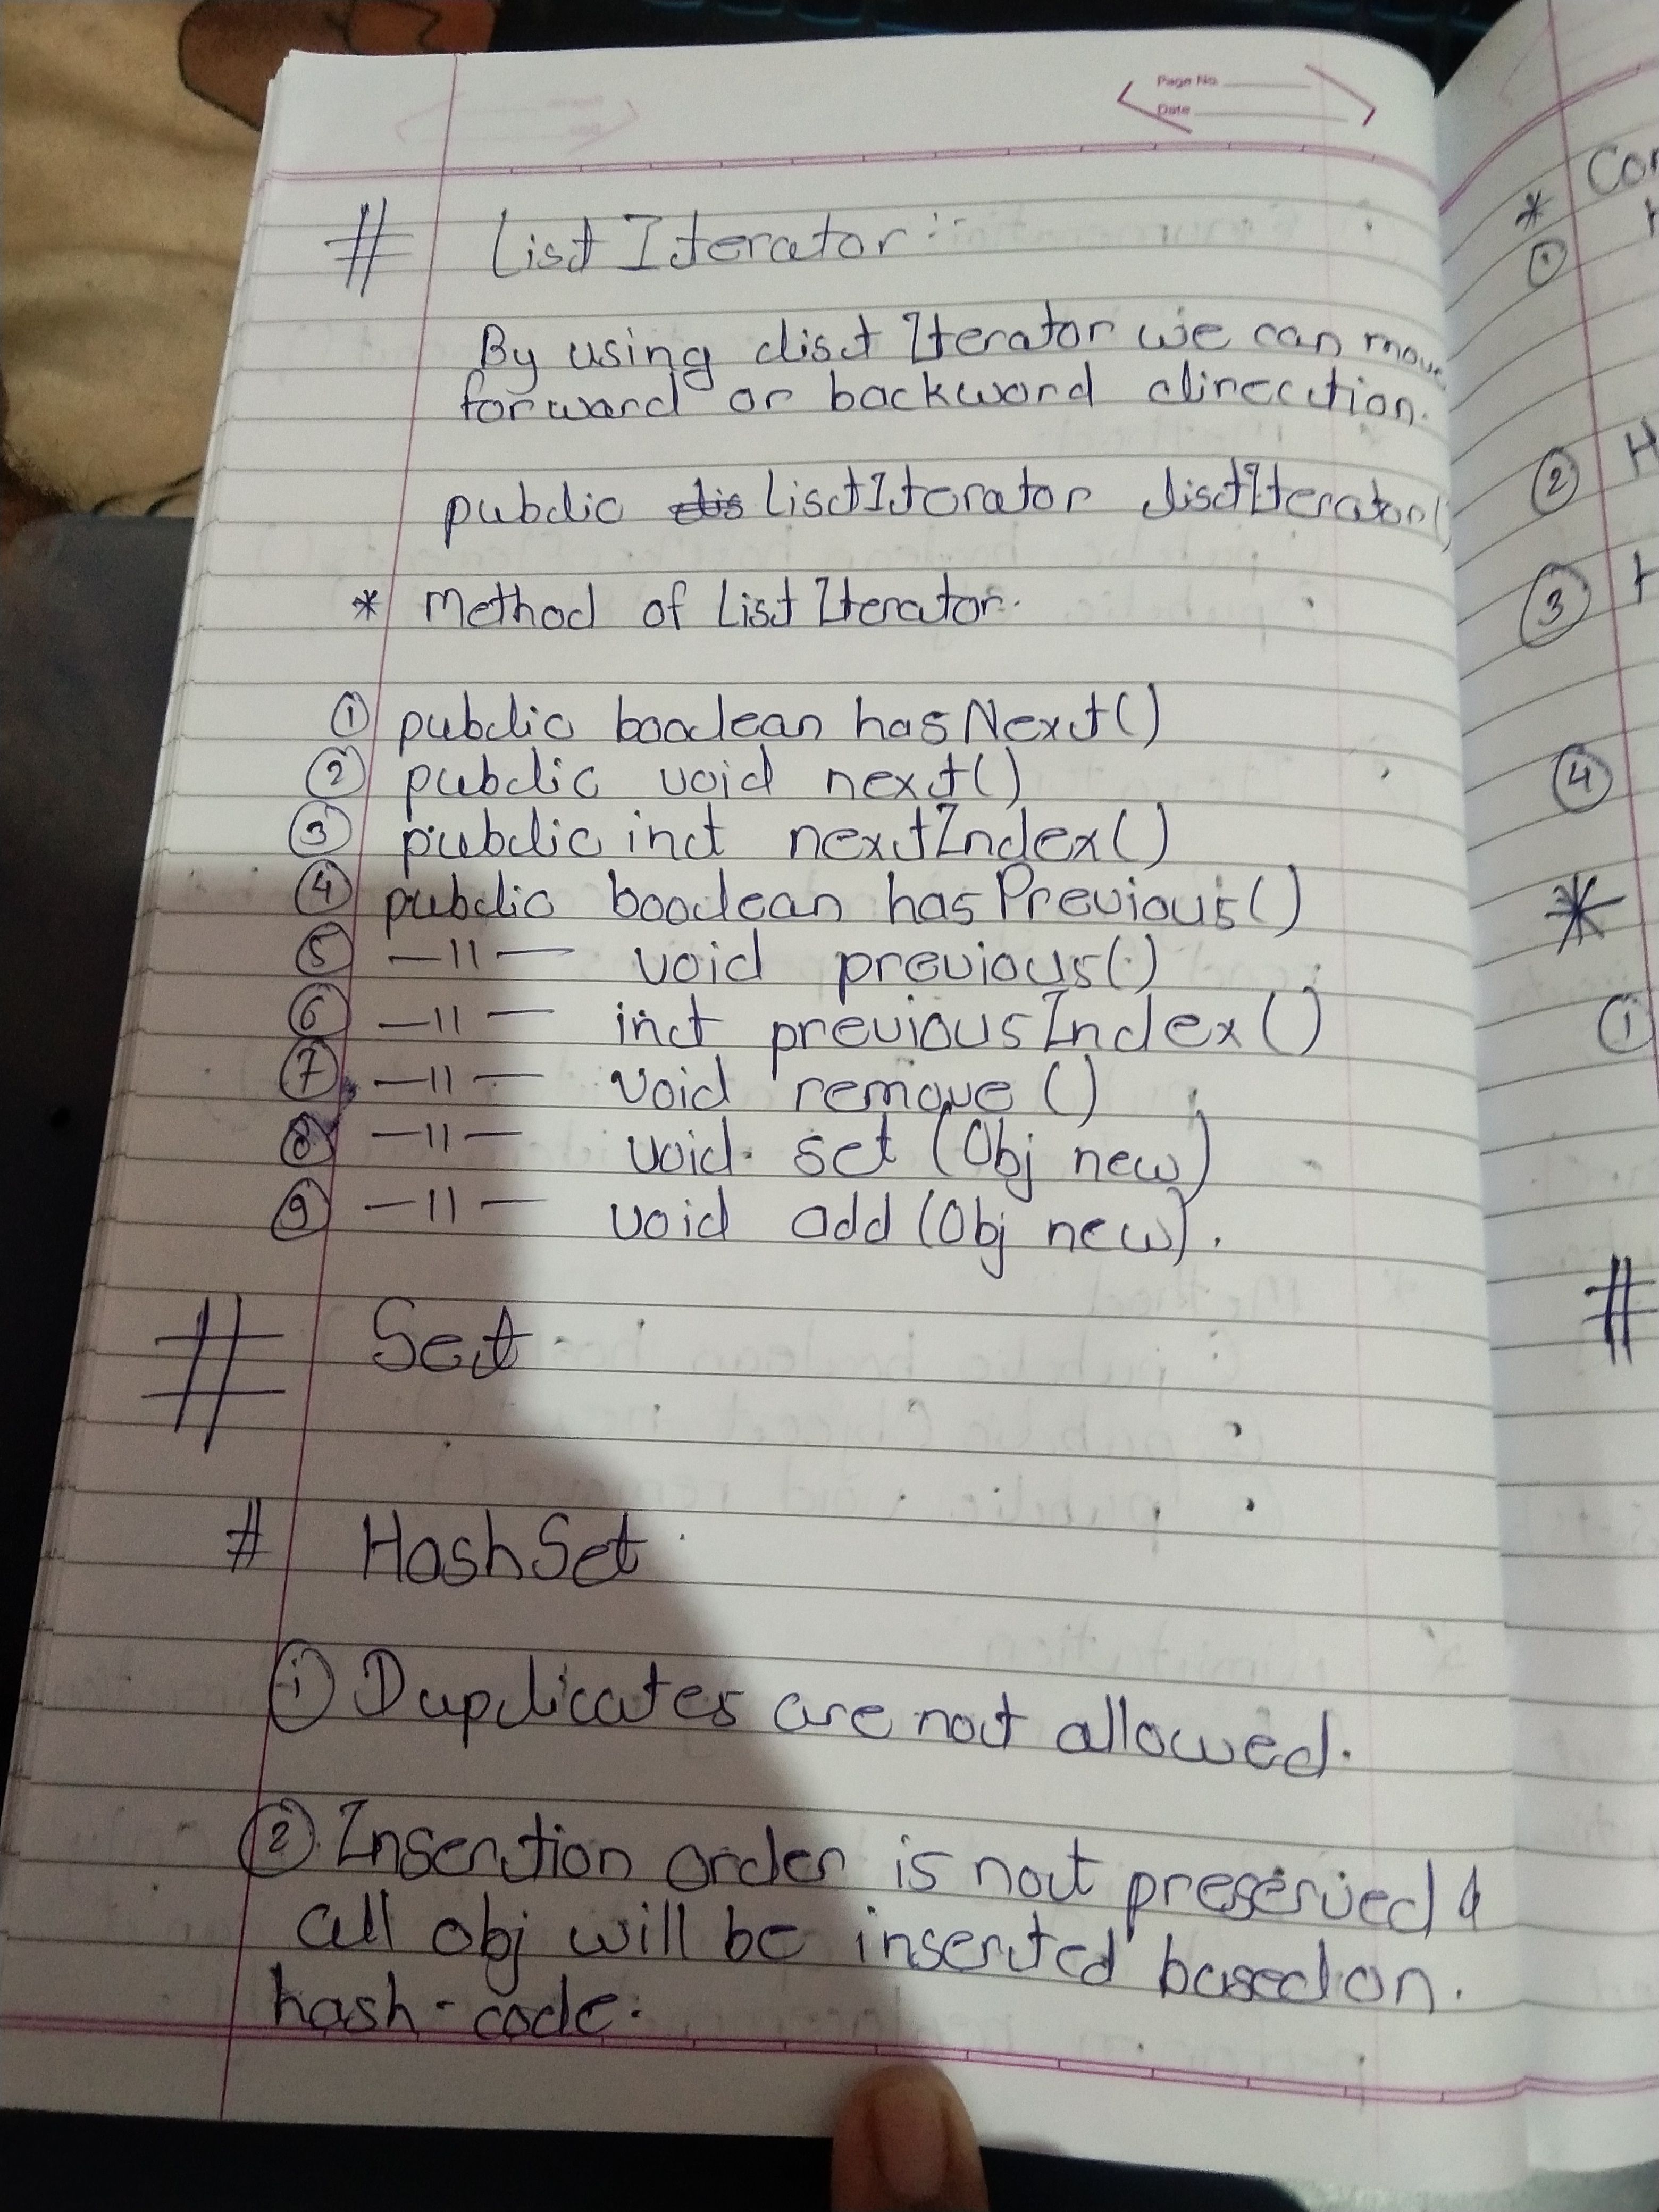 Page No.
Date
# List Iterator :-
By using List Iterator we can move
forward or backword direction.
public ListIterator listIterator(
* Method of List Iterator.
① public boolean hasNext()
② public void next()
③ public int nextIndex()
④ public boolean hasPrevious()
⑤ —11— void previous()
⑥ —11— int previousIndex()
⑦ —11— void remove ()
⑧ —11— void set (Obj new)
⑨ —11— void add (Obj new).
# Set
# HashSet
① Duplicates are not allowed.
② Insertion order is not preserved &
all obj will be inserted based on.
hash-code.
* Con
①
② H
③ H
④
*
①
#